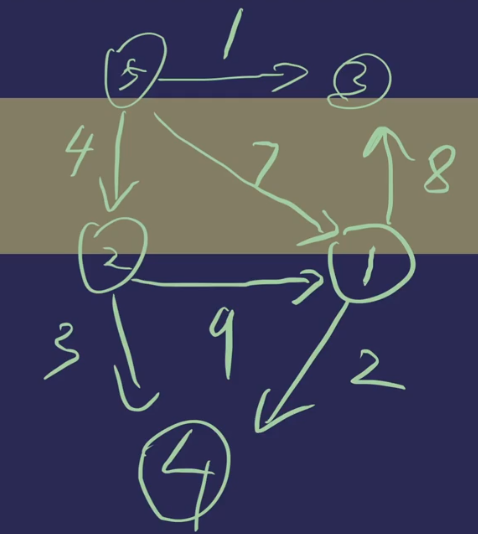 1
5 3
4 7 8
2 1
9
3 2
4